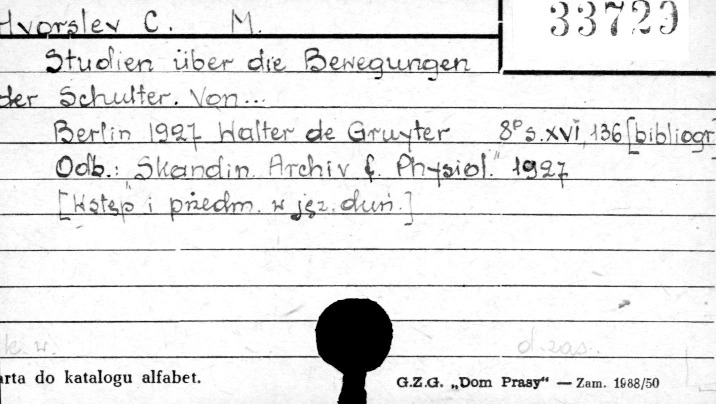 Hvorslev C. M.
33729
Studien über die Bewegungen
der Schulter. Von...
Berlin 1927 Walter de Gruyter 8° s. XVI, 136 [bibliogr
Odb.: "Skandin. Archiv f. Physiol." 1927
[Wstęp i przedm. w jęz. duń.]
k. w. d. zas.
arta do katalogu alfabet.
G.Z.G. „Dom Prasy“ — Zam. 1988/50